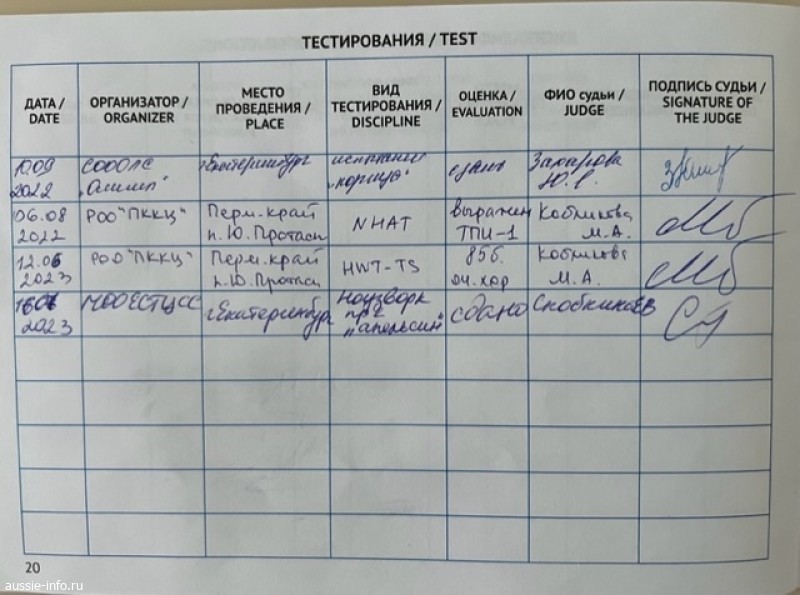 ТЕСТИРОВАНИЯ / TEST
ДАТА /
DATE
ОРГАНИЗАТОР /
ORGANIZER
МЕСТО
ПРОВЕДЕНИЯ /
PLACE
ВИД
ТЕСТИРОВАНИЯ /
DISCIPLINE
ОЦЕНКА /
EVALUATION
ФИО судьи /
JUDGE
ПОДПИСЬ СУДЬИ /
SIGNATURE OF
THE JUDGE
10.09
2022
СОООЛС
"Олимп"
г. Екатеринбург
испытание
"корица"
сдано
Захарова
Ю.
06.08
2022
РОО "ПККЦ"
Перм. край
п. Ю. Протасы
NHAT
выражен
ТПИ-1
М.А.
12.06
2023
РОО "ПККЦ"
Перм. край
п. Ю. Протасы
HWT-TS
85б.
оч. хор
М.А.
2023
г. Екатеринбург
Ноузворк
"апельсин"
сдано
20
aussie-info.ru